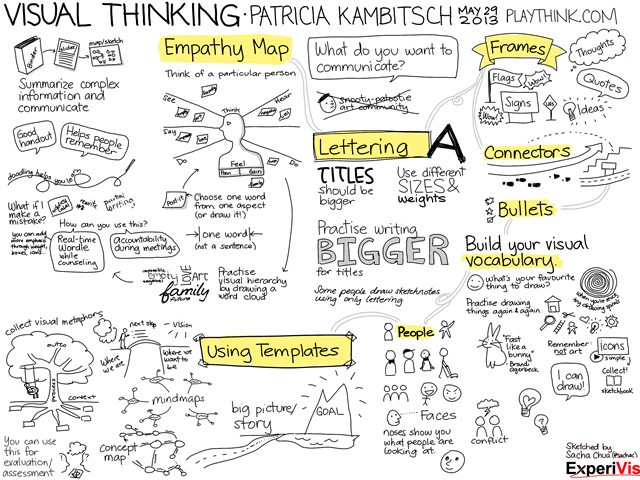 VISUAL THINKING · PATRICIA KAMBITSCH MAY 29 2013 PLAYTHINK.COM
Binder
slides
map/sketch
Summarize complex
information and
communicate
Good
handout
Helps people
remember
doodling helps you learn
What if I
make a
mistake?
write
partial
writing
you can add
more emphasis
through weight,
boxes, icons...
How can you use this?
Real-time
Wordle
while
counseling
Accountability
during meetings
Empathy Map
Think of a particular person
See
Think
Hear
Say
Do
Do
Feel
Pain
Gain
Post it
Choose one word
from one aspect
(or draw it!)
one word
(not a sentence)
empty
Art
family
future
Practise
visual hierarchy
by drawing a
word cloud
What do you want to
communicate?
Snooty-patootie
art community
Lettering A
TITLES
should be
bigger
Use different
SIZES &
weights
Practise writing
BIGGER
for titles
Some people draw sketchnotes
using only lettering.
Frames
Thoughts
Flags
Wow!
Quotes
Signs
Wow!
Ideas
Connectors
Bullets
Build your visual
vocabulary.
what's your favourite
thing to draw?
Practise drawing
things again & again.
"Fast
like a
bunny"
Brandy
agerbeck
Remember:
not art
icons
simple
Collect!
sketchbook
I can
draw!
collect visual metaphors
outco
process
context
You can use
this for
evaluation/
assessment
next step
Vision
Where
we are
Where we
want to
be
mindmaps
Concept
map
Using Templates
big picture/
story
GOAL
People
Faces
noses show you
what people are
looking at.
conflict
Sketched by:
Sacha Chua (@sachac)
ExperiVis